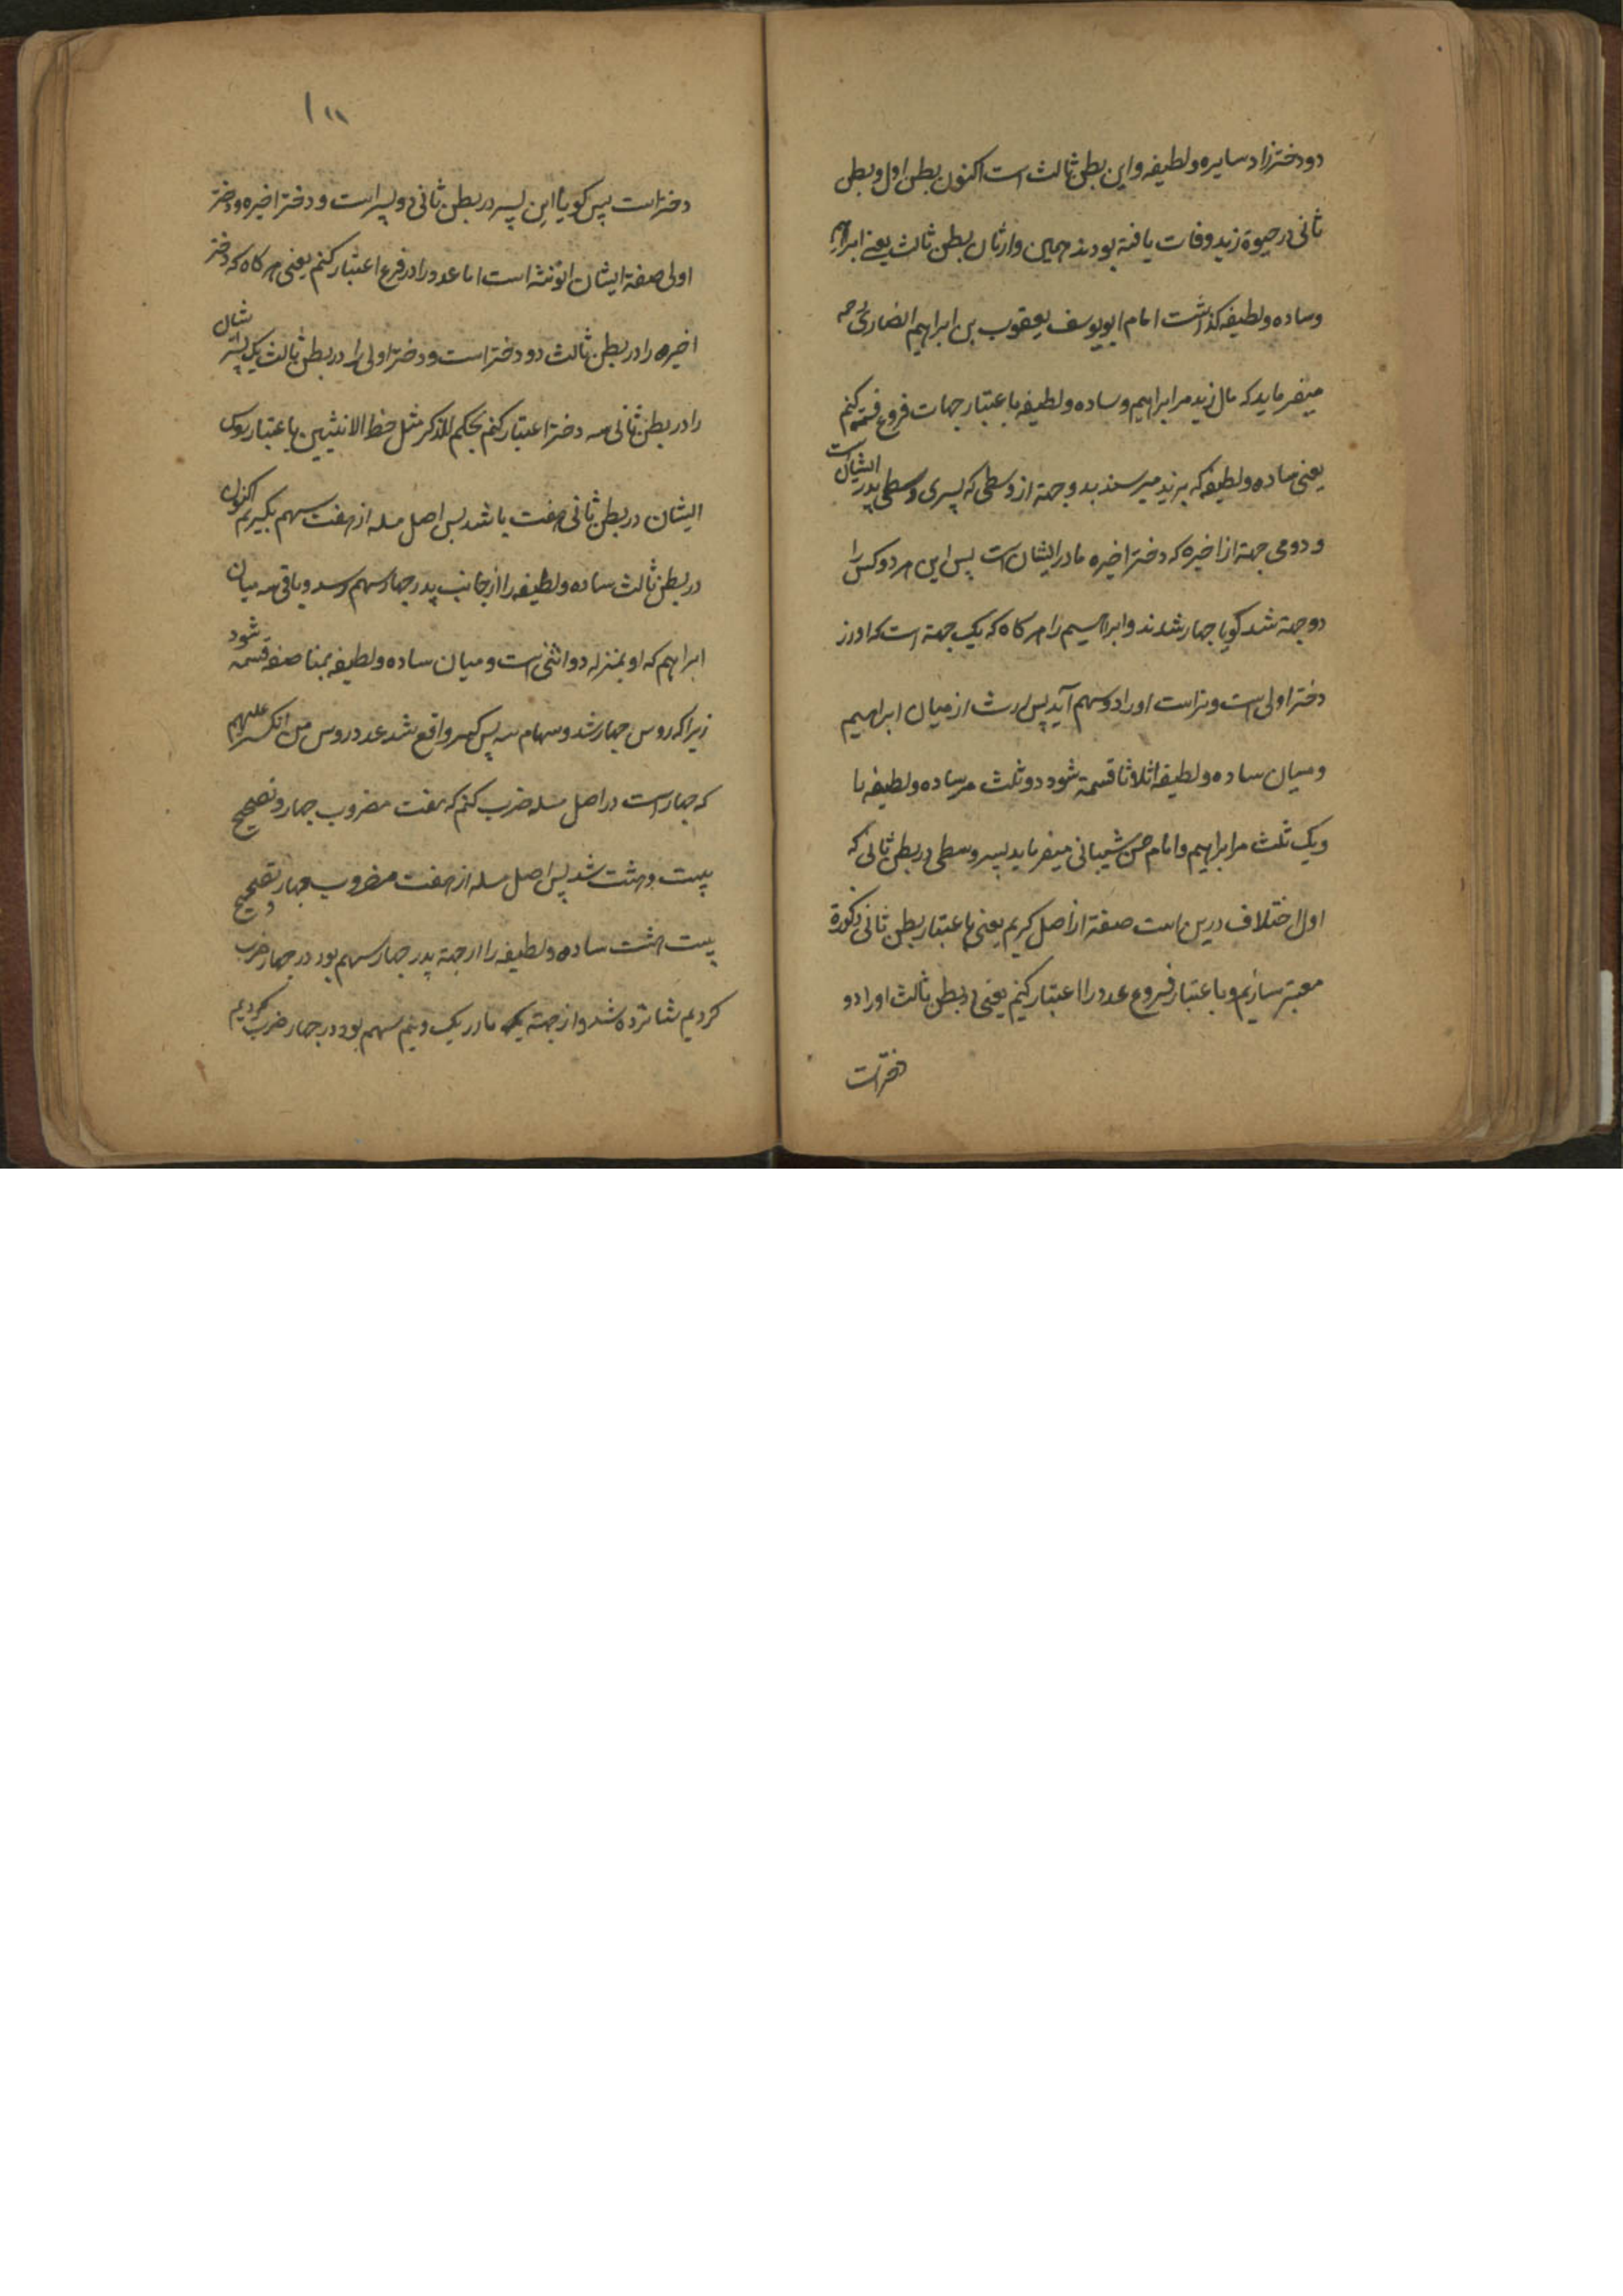 دو دختر زاد سایره و لطیفه و این بطن ثالث است اکنون بطن اول و بطن
ثانی در حیوة زید وفات یافته بودند همین وارثان بطن ثالث یعنی ابراهیم
و ساده و لطیفه گذاشت امام ابویوسف یعقوب بن ابراهیم انصاری رحمه
میفرماید که مال زید مر ابراهیم و ساده و لطیفه باعتبار جهات فروع قسمة کنم
یعنی ساده و لطیفه که بزید میرسند بدو جهة از وسطی که پسری وسطی پدر ایشان است
و دومی جهة از اخیره که دختر اخیره مادر ایشان است پس این هر دو کس را
دو جهة شد گویا چهار شدند و ابراهیم را هر گاه که یک جهة است که او از
دختر اولی است و نر است او را دو سهم آید پس ارث از میان ابراهیم
و میان ساده و لطیفه اثلاثا قسمة شود دو ثلث مر ساده و لطیفه را
و یک ثلث مر ابراهیم و امام حسن شیبانی میفرماید پسر وسطی در بطن ثانی که
اول اختلاف درین است صفة از اصل گیریم یعنی باعتبار بطن ثانی ذکورة
معتبر سازیم و باعتبار فروع عدد را اعتبار کنیم یعنی در بطن ثالث او را دو
دختر است
۱۱۸
دختر است پس گویا این پسر در بطن ثانی دو پسر است و دختر اخیره و دختر
اولی صفة ایشان انوثة است اما عدد را در فرع اعتبار کنم یعنی هر گاه که دختر
اخیره را در بطن ثالث دو دختر است و دختر اولی را در بطن ثالث یک پسر ایشان
را در بطن ثانی سه دختر اعتبار کنم بحکم للذکر مثل حظ الانثیین باعتبار روس
ایشان در بطن ثانی هفت باشد پس اصل مسله از هفت سهم بگیریم اکنون
در بطن ثالث ساده و لطیفه را از جانب پدر چهار سهم رسد و باقی سه میان
ابراهیم که او بمنزله دو انثی است و میان ساده و لطیفه بمناصفه قسمة شود
زیرا که روس چهار شد و سهام سه پس کسر واقع شد عدد روس من انکسر علیهم
که چهار است در اصل مسله ضرب کنم که هفت مضروب چهار و تصحیح
بیست و هشت شد پس اصل مسله از هفت مضروب چهار و تصحیح
بیست هشت ساده و لطیفه را از جهة پدر چهار سهم بود در چهار ضرب
کردیم شانزده شد و از جهة مادر یک و نیم سهم بود در چهار ضرب کردیم